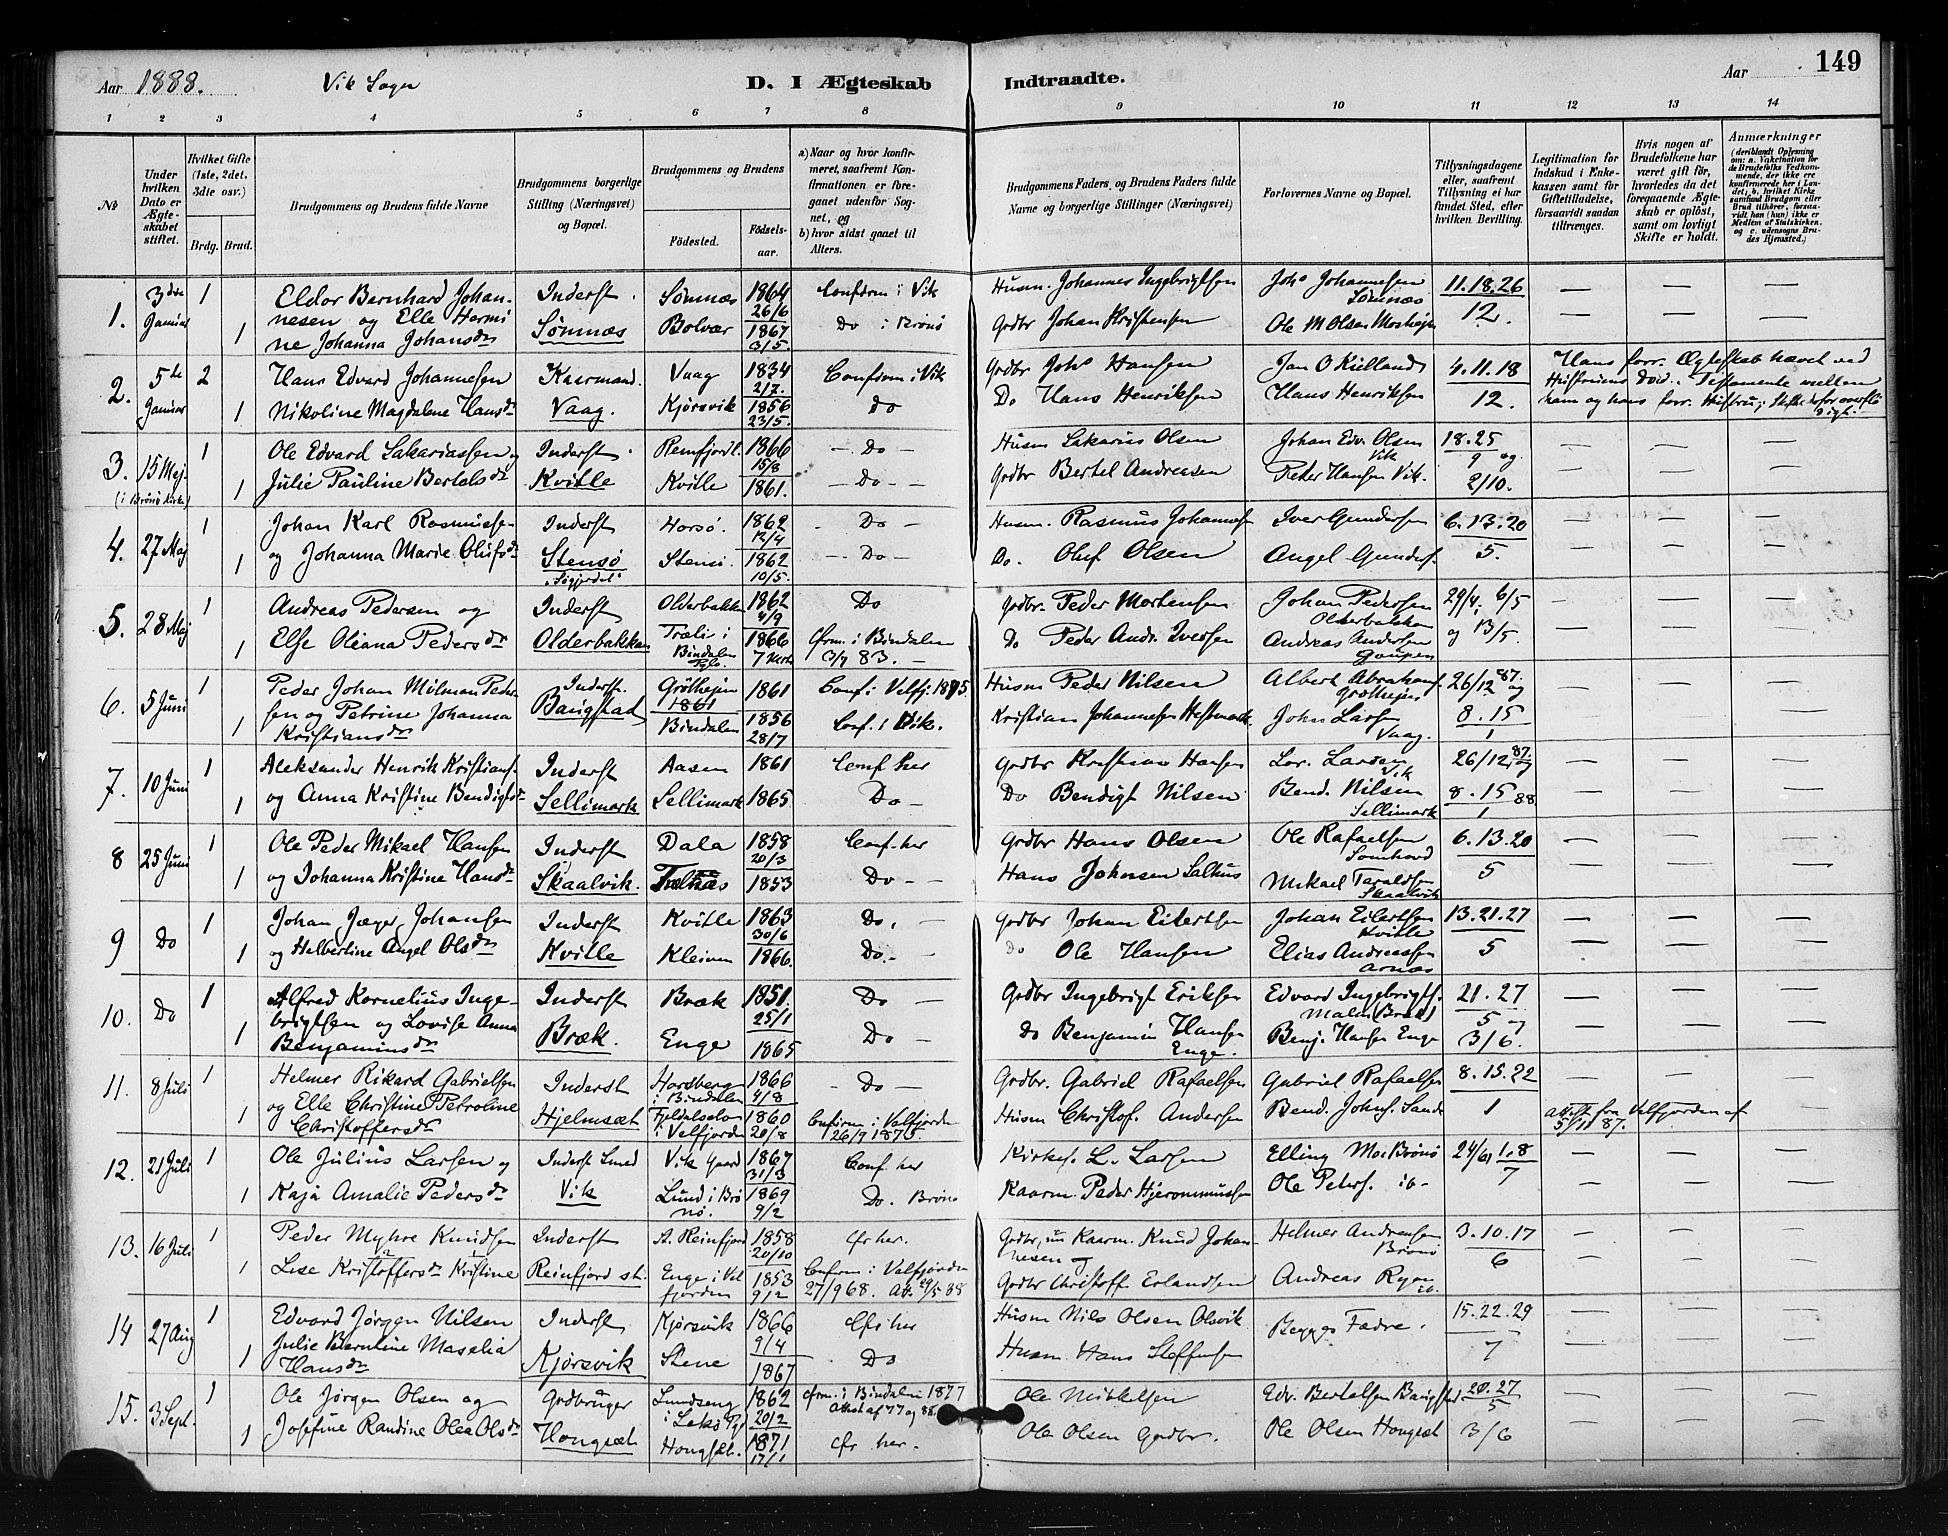 Aar 1888. Vik Sogn D. I Ægteskab Indtraadte. Aar 149
1 2 3 4 5 6 7 8 9 10 11 12 13 14
№
Under hvilken Dato er Ægteskabet stiftet.
Hvilket Gifte (1ste, 2det, 3die osv.)
Brdg. Brud.
Brudgommens og Brudens fulde Navne
Brudgommens borgerlige Stilling (Næringsvei) og Bopæl.
Brudgommens og Brudens
Fødested. Fødselsaar.
a) Naar og hvor konfirmeret, saafremt Konfirmationen er foregaaet udenfor Sognet, og
b) hvor sidst gaaet til Alters.
Brudgommens Faders, og Brudens Faders fulde Navne og borgerlige Stillinger (Næringsvei)
Forlovernes Navne og Bopæl.
Tillysningsdagene eller, saafremt Tillysning ei har fundet Sted, efter hvilken Bevilling.
Legitimation for Indskud i Enkekassen samt for Giftetilladelse, forsaavidt saadan tiltrænges.
Hvis nogen af Brudefolkene har været gift før, hvorledes da det foregaaende Ægteskab er opløst, samt om lovligt Skifte er holdt.
Anmærkninger
1. 3die Januar 1 Eldor Bernhard Johan- Inderst. Sømnæs 1864 26/6 Confirm i Vik Husm. Johannes Ingebrigtsen Johs Johannesen Sømnæs 11.18.26
nesen og Elle Hermi
1 ne Johanna Johansdr Sømnæs Bolvær 1867 3/5 Do i Brönö Grdbr Johan Kristensen Ole M Olsen 12.
2. 5te Januar 2 Hans Edvard Johannesen Kaarmand. Vaag 1834 2/7. Confirm. i Vik Grdbr Johs Hansen Jan O Kielland 4.11.18 Hans forr. Ægteskab hævet ved
Hustruens Död. Testamente mellem
1 Nikoline Magdalene Hansdr Vaag. Kjørsvik 1856 23/5. do Do Hans Henriksen Hans Henriksen 12. ham og hans forr. Hustru; Skifte derfor overflö
digt.
3. 15 Mej. 1 Ole Edvard Sakariassen og Inderst. Reinfjord. 1866 15/8 — Do — Husm Sakarias Olsen Johan Edv. Olsen Vik 18.25 9 og
(i Brönö Kirke) 1 Julie Pauline Bertelsdr Kvitle Kvitle 1861. — Do — Grdbr Bertel Andreasen Peter Hansen Vik. 2/10.
4. 27 Maj 1 Johan Karl Rasmussen Inderst Horsö. 1862 12/4 - Do — Husm. Rasmus Johannesen Iver Gundersen 6.13.20
1 og Johanna Marie Olufsdr Stensö Stensö. 1862 10/5. — Do — Do. Oluf Olsen Angel Gunders. 5.
5. 28 Maj 1 Andreas Pedersen og Inderst Olderbakken 1862 4/9 Do Grdbr. Peder Mortensen Johan Pedersen Olderbakken 29/4, 6/5
1 Else Oliana Pedersdr Olderbakken Trælis i Bindalen 1866 Cfrm. i Bindalen 3/7 83. — Do Peder Andr. Iversen Andreas Andersen og 13/5.
6. 5 Juni 1 Peder Johan Milman Peder- Inderst. Gröthejen 1861 1861 Conf i Velfj. 1875 Husm Peder Nilsen Albert Abrahams. Gröthejen 26/12 87. og
sen og Petrine Johanna Bangstad
1 Kristiansdr Bindalen 1856 28/7 Conf. i Vik. Kristian Johannesen John Larsen Vaag. 8.15 1
7. 10 Juni 1 Aleksander Henrik Kristians. Inderst Aasen 1861 Conf her Grdbr Kristian Hansen Lor. Larsen Vik 26/12 87. og
1 og Anna Kristine Bendigtsdr Sellimark Sellimark 1865. Do — Do Bendigt Nilsen Bend. Nilsen Sellimark 8.15 88 1
8 25 Juni 1 Ole Peder Mikael Hansen Inderst Dala 1858 20/3 Conf. her Grdbr Hans Olsen Ole Rafaelsen 6.13.20
1 og Johanna Kristine Hansdr Skaalvik. 1853 Do — Hans Johnsen Salhus Mikael Taraldsen Skaalvik 5
9 Do 1 Johan Jæger Johansen Inderst Kvitle 1863 30/6 Do. — Grdbr Johan Eilertsen Johan Eilertsen Kvitle 13.21.27
1 og Helbertine Angel Olsdr Kvitle Kleiven 1866. Do. - do Ole Hansen Elias Andreassen Arnæs 5
10. Do 1 Alfred Kornelius Inge- Inderst Bræk 1851. 25/1 Do — Grdbr Ingebrigt Eriksen Edvard Ingebrigts. 21.27
1 brigtsen og Lovise Anna Bræk. Enge 1865 Do — do Benjamin Hansen Enge. Benj. Hansen Enge 5 og 3/6.
Benjaminsdr
11. 8 Juli 1 Helmer Rikard Gabrielsen Inderst Horsberg i Bindalen 1866 4/8 - Do — Grdbr. Gabriel Rafaelsen Gabriel Rafaelsen 8.15.22
1 og Elle Christine Petroline Hjelmsæt i Velfjorden 1860 20/8 Confirm. i Velfjorden 26/9 1875. Husm Christof. Andersen Bend. Johns. Sande 1 Attest fra Velfjorden af
Christoffersdr 5/11 87.
12. 21 Juli 1 Ole Julius Larsen og Inderst Smed Vik Gaard 1867 31/3 Conf her Kirkes. L. Larsen Elling Mo. Brönö 24/6, 1.8
1 Kaja Amalie Pedersdr Vik Lund i Brö nö. 1869 9/2 Do. Brönö Kaarm. Peder Hjeronimussen Ole Peters. ib - 7
13. 16 Juli 1 Peder Myhre Knudsen Inderst Reinfjord 1858 20/10 Cfr her. Grdbr, nu Kaarm. Knud Johan- Helmer Andreasen Brönö 3.10.17
nesen og
1 Lise Kristoffersdr Kristine Reinfjord st. Enge i Vel fjorden 1853 9/2 Confirm. i Velfjorden 27/9 68. Att. 29/5 88 Grdbr Christoff. Erlandsen Andreas 6
14 27 Aug 1 Edvard Jørgen Nilsen Inderst Kjørsvik 1866 9/4 Cfr her Husm Nils Olsen Olsvik Begges Fædre. 15.22.29
1 Julie Bernline Maselia Kjørsvik Stene 1867 Do Husm. Hans Steffensen 7
Hansdr
15. 3 Sept. 1 Ole Jørgen Olsen og Grdbruger Lundseng i Lekö Pgj 1862 20/2 Cfrm. i Bindalen 1877 Attest af 77 og 88. Ole Mikkelsen Edv. Bertelsen Bangstad 20.27 5
1 Josefine Randine Olea Olsdr Hongsæt Hongsæt. 1871 17/1 Cfr her. Ole Olsen Grdbr. Ole Olsen Hongsæt 3/6